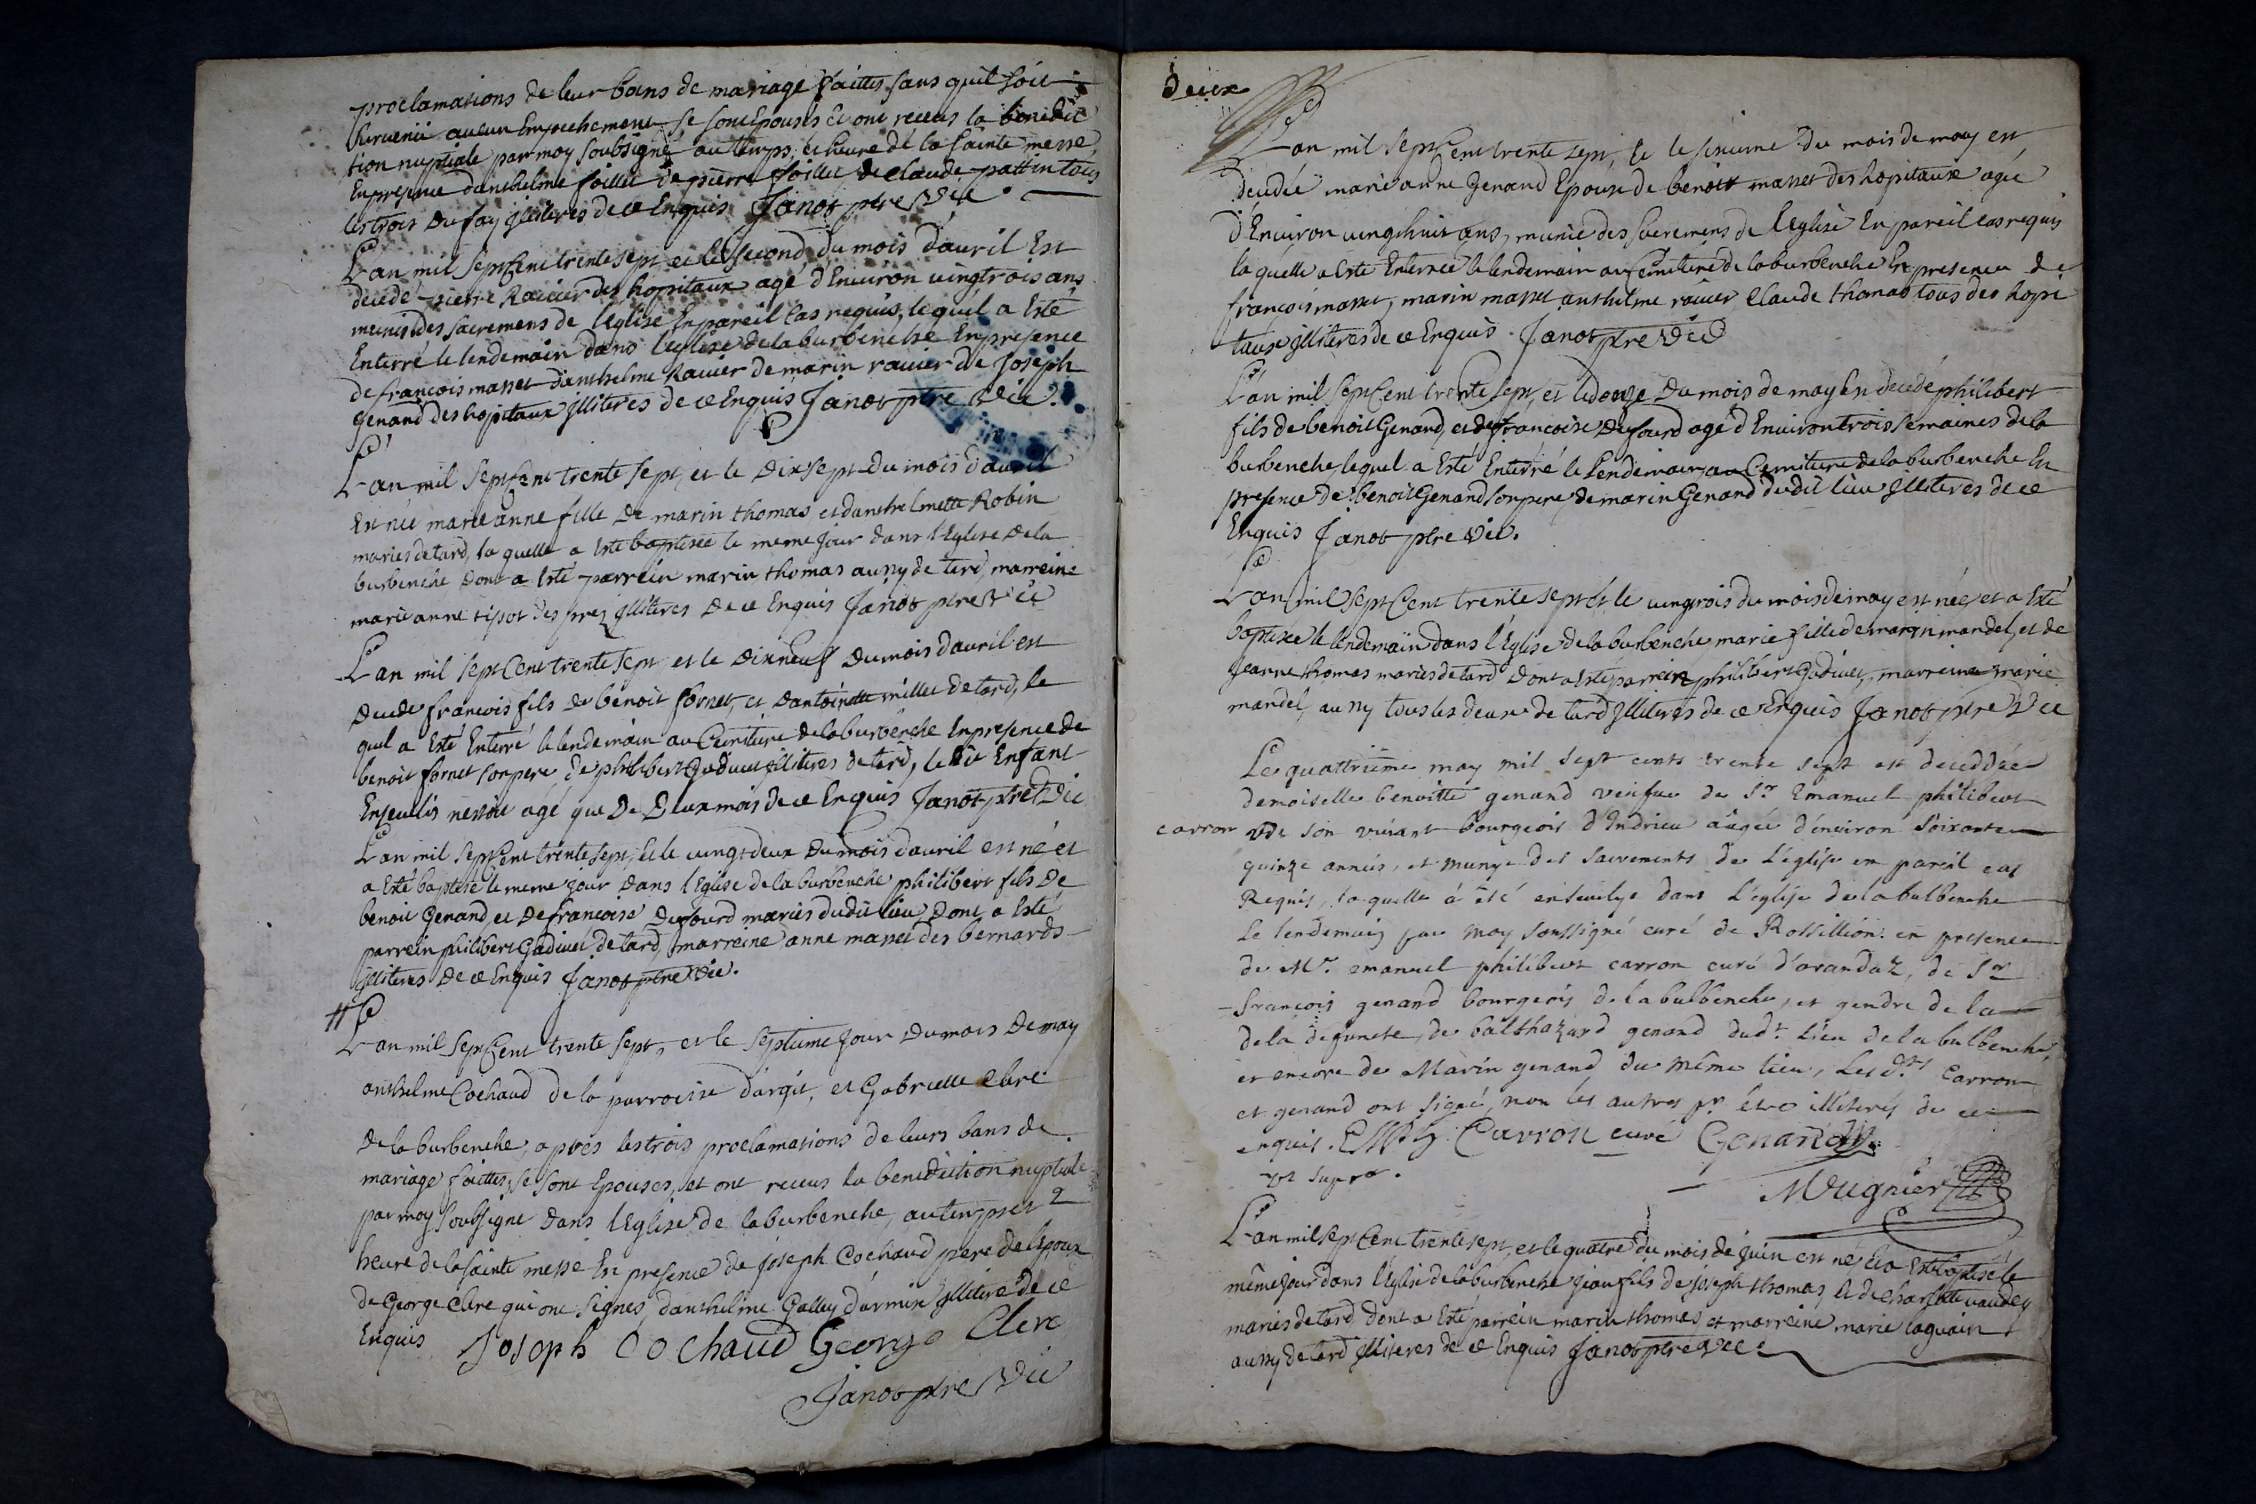 proclamations de leur bans de mariage faittes sans quil soit
survenü aucun Empechement se sont Epousés et ont receus la benedic
tion nuptiale par moy soubsigné au temps, et heure de la sainte messe,
En presence danthelme foillet de pierre foillet de Claude pattin tous
les trois du fay jlliteres de ce Enquis Janot ptre Vic
L'an mil sept Cent trente sept et le second du mois d'avril Est
decede pierre Ravier des hopitaux agé d'Environ vingtrois ans
munis des sacremens de l'Eglise En pareil Cas requis, le quel a Esté
Enterré le lendemain dans l'eglise de la burbenche En presence
de françois masset d'anthelme Ravier de marin ravier de Joseph
genand des hopitaux jlliteres de ce Enquis Janot ptre Vic.
L'an mil sept Cent trente sept, et le dix sept du mois d'avril
Est née marie anne fille de marin thomas et danthelmette Robin
mariés de tard, la quelle a Esté baptisée le meme jour dans l'Eglise de la
burbenche dont a Esté parrein marin thomas au ny de tard, marreine
marie anne tipot des prez jlliteres de ce Enquis Janot ptre Vic
L'an mil sept Cent trente sept et le dixneuf du mois d'avril est
decede françois fils de benoit fornet, et d'antoinette millet de tard, le
quel a Esté Enterré le lendemain au Cemitiere de la burbenche En presence de
benoit fornet son pere de philibert Gudivet jlliteres de tard, le dit Enfant
Enseulis n'estoit agé que de deux mois de ce Enquis Janot ptre Vic
L'an mil sept Cent trente sept, et le vingt deux du mois d'avril est né et
a Esté baptisé le meme jour dans l'Eglise de la burbenche philibert fils de
benoit Genand, et de françoise dufourd mariés dudit lieu dont a Esté
parrein philibert Gudivet de tard, marreine anne masset des bernards
jlliteres de ce Enquis Janot ptre Vic.
L'an mil sept Cent trente sept, et le septieme jour du mois de may
anthelme Cochaud de la parroisse d'argit, et Gabrielle Clerc
de la burbenche, aprés les trois proclamations de leurs bans de
mariage faittes, se sont Epousés, et ont receus la benediction nuptiale
par moy soubsigné dans l'Eglise de la burbenche, au temps et
heure de la sainte messe En presence de joseph Cochaud pere de l'epoux
de George Clerc qui ont signés, danthelme Galley d'armix jllitere de ce
Enquis Joseph Cochaud George Clerc
Janot ptre Vic
Deux
L'an mil sept Cent trente sept, et le sixieme du mois de may est
decedée marie anne Genand Epouse de benoit masset des hopitaux agée
d'Environ vingt huit ans, munie des sacremens de l'Eglise En pareil cas requis
la quelle a Esté Enterrée le lendemain au Cemitiere de la burbenche En presence de
françois masset, marin masset anthelme ravier Claude thomas tous des hopi
taux jlliteres de ce Enquis Janot ptre Vic
L'an mil sept Cent trente sept, et le douze du mois de may En decedé philibert
fils de benoit Genand, et de françoise dufourd agé d'Environ trois semaines de la
burbenche lequel a Esté Enterré le Lendemain au Cemitiere de la burbenche En
presence de benoit Genand son pere de marin Genand dudit lieu jlliteres de ce
Enquis Janot ptre Vic.
L'an mil sept Cent trente sept et le vingtrois du mois de may est née, et a Esté
baptisée le lendemain dans l'Eglise de la burbenche marie fille de marin mandel, et de
jeanne thomas mariés de tard dont a Esté parrein philibert Gudivet, marreine marie
mandel, au ny tous les deux de tard jlliteres de ce Enquis Janot ptre Vic
Le quattrieme may mil sept cents trente sept est deceddée
demoiselle benoitte genand veüfue de Sr Emanuel philibert
carron de son vivant bourgeois d'Indrieu aagée d'environ soixante
quinze années, et munye des sacrements de l'église en pareil cas
Requis, la quelle á été ensevelye dans l'église de la bulbenche
Le lendemain par moy soussigné curé de Rossillion en presence
de Mr. emanuel philibert carron curé d'arandaz, de Sr
françois genand bourgeois de la bulbenche, et gendre de la
de la defuncte, de balthazard genand dudt. Lieu de la bulbenche,
et encore de Marin genand du même lieu, Lesdts Carron
et genand ont signé, non les autres pr. être illiterés de ce
enquis. Carron curé Genand
ut supra. Mugnier
L'an mil sept Cent trente sept, et le quatre du mois de juin est né et a Esté baptisé le
même jour dans l'Eglise de la burbenche jean fils de joseph thomas, et de charlotte vaudey
mariés de tard dont a Esté parrein marin thomas et marreine marie laguain
au ny de tard jlliteres de ce Enquis Janot ptre Vic.